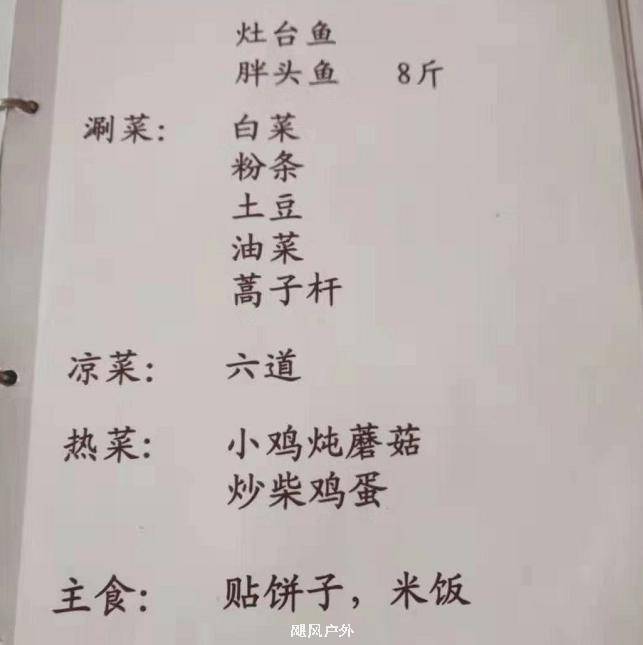 灶台鱼
胖头鱼 8斤
涮菜: 白菜
粉条
土豆
油菜
蒿子杆
凉菜: 六道
热菜: 小鸡炖蘑菇
炒柴鸡蛋
主食: 贴饼子，米饭
飓风户外